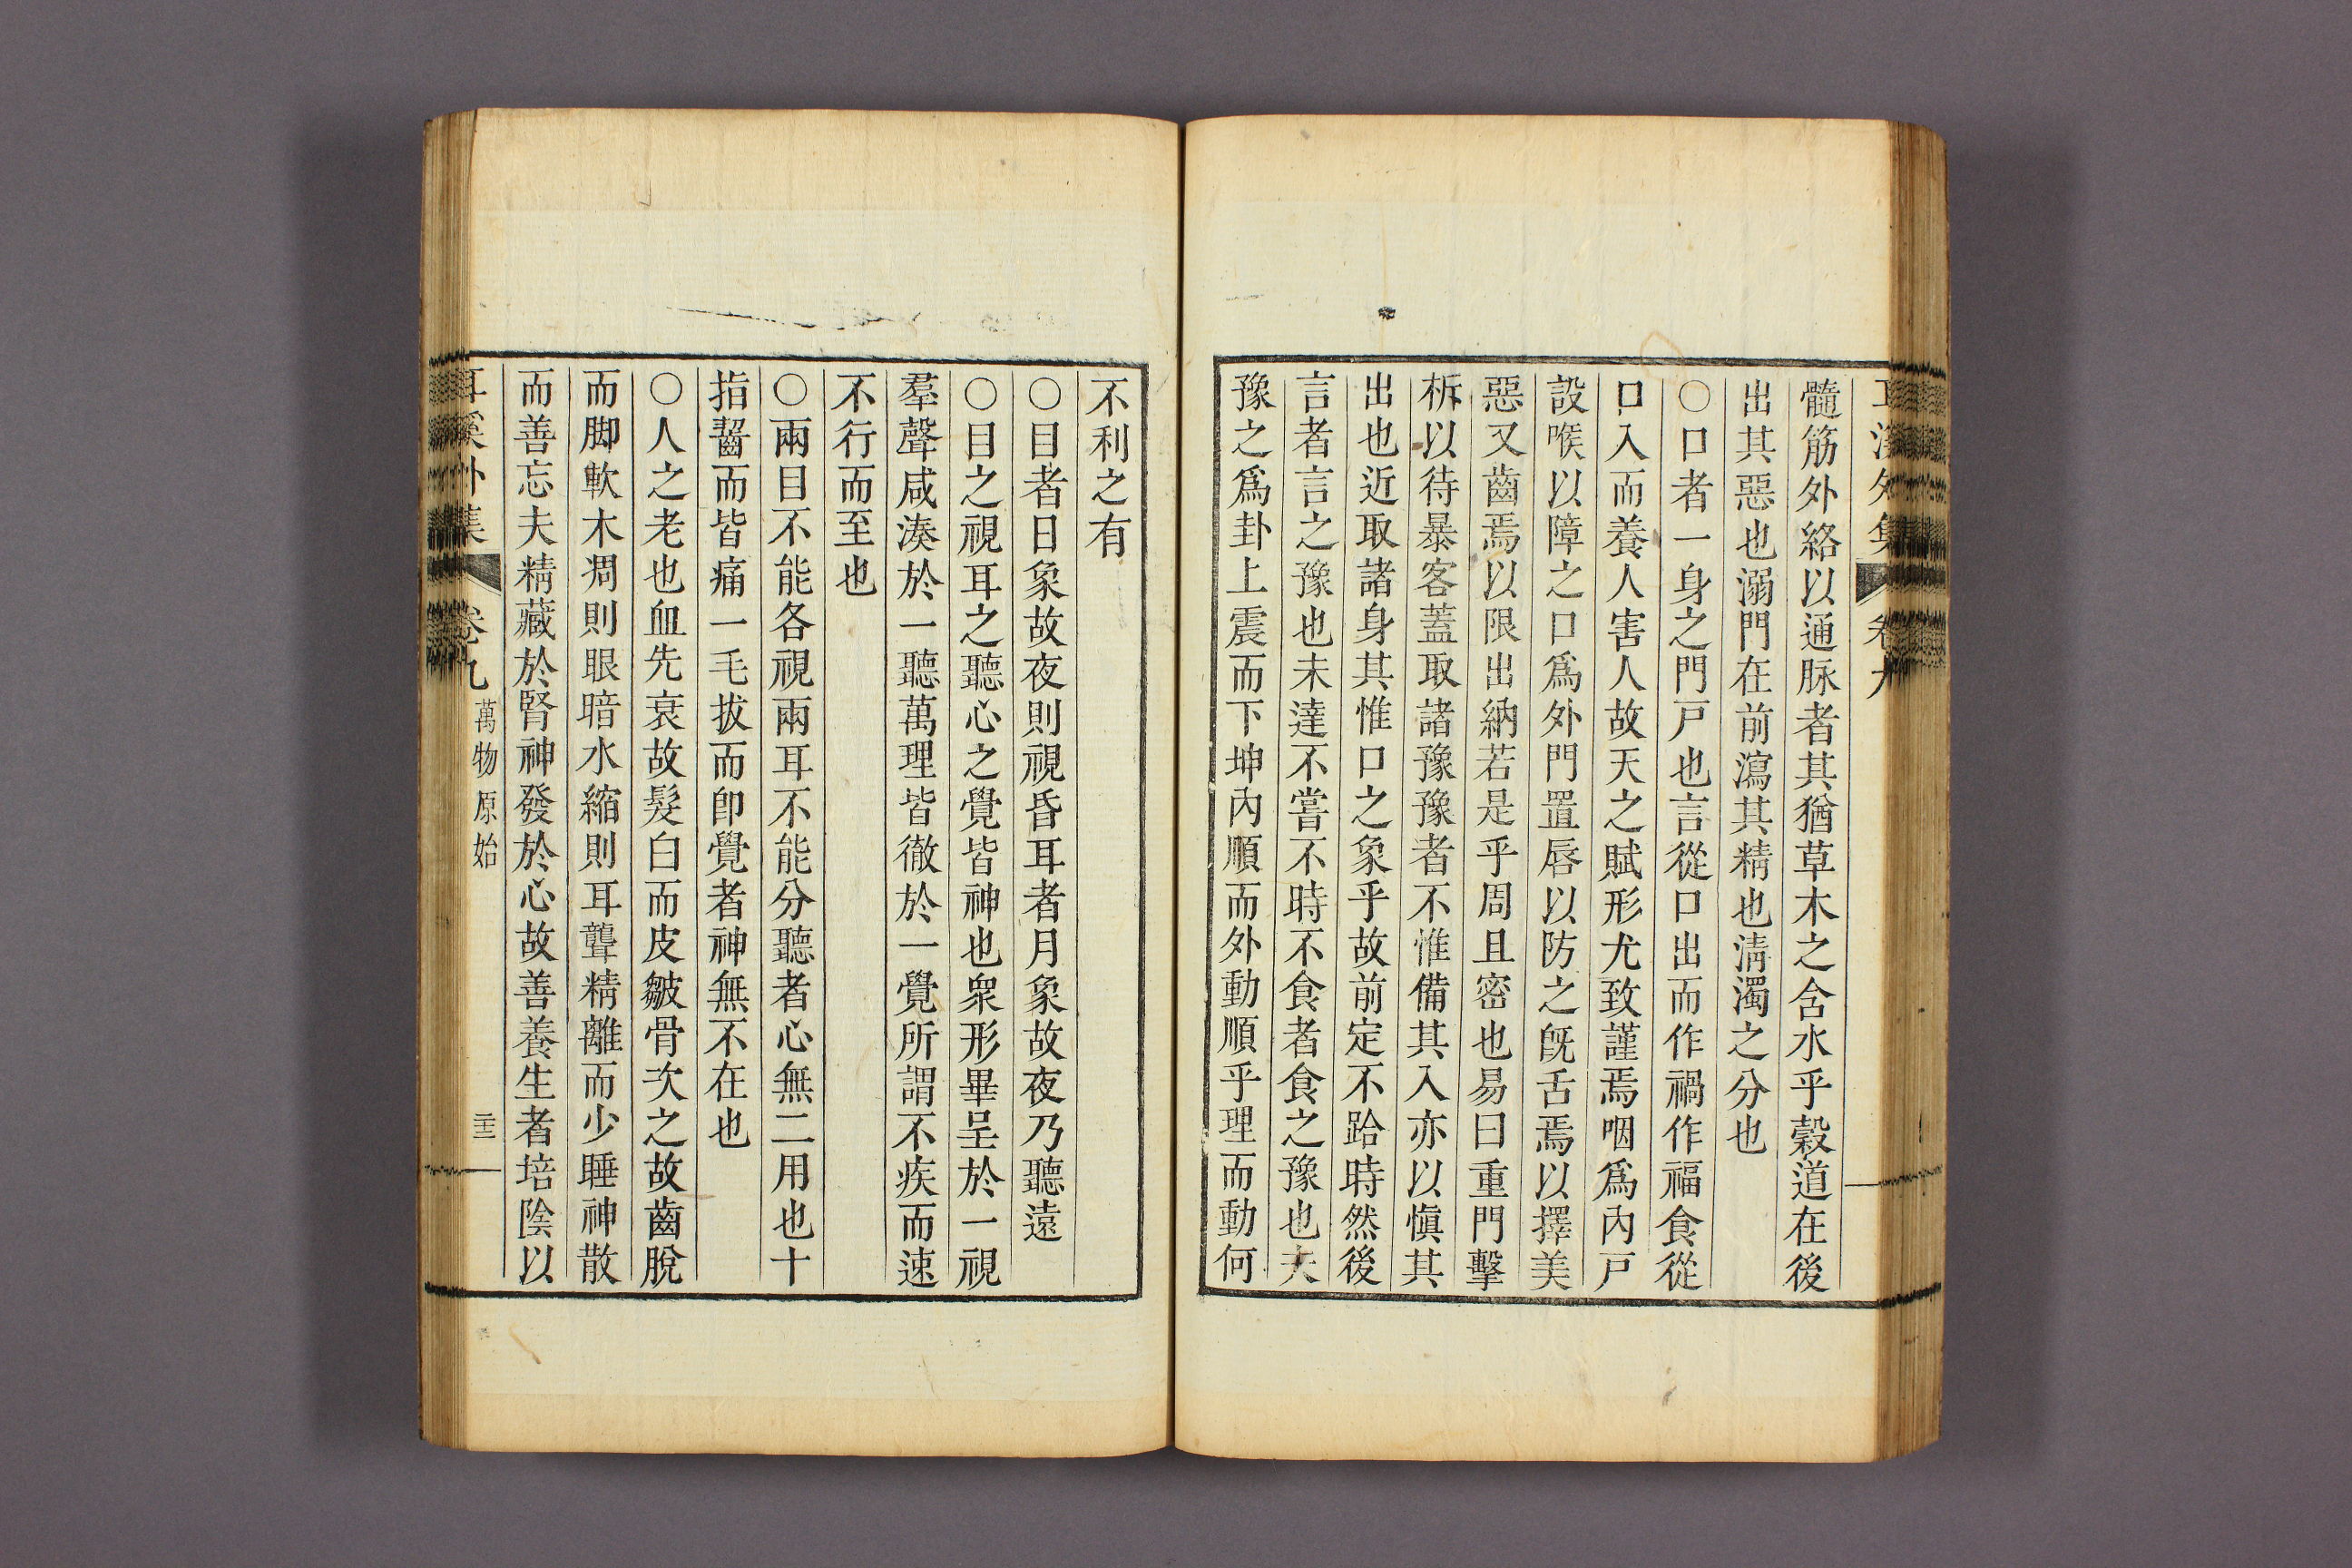 耳溪外集 卷九
髓筋外絡以通脉者其猶草木之含水乎穀道在後
出其惡也溺門在前瀉其精也淸濁之分也
○口者一身之門戸也言從口出而作禍作福食從
口入而養人害人故天之賦形尤致謹焉咽爲內戸
設喉以障之口爲外門置唇以防之旣舌焉以擇美
惡又齒焉以限出納若是乎周且密也易曰重門擊
柝以待暴客蓋取諸豫豫者不惟備其入亦以愼其
出也近取諸身其惟口之象乎故前定不跲時然後
言者言之豫也未達不嘗不時不食者食之豫也夫
豫之爲卦上震而下坤內順而外動順乎理而動何
不利之有
○目者日象故夜則視昏耳者月象故夜乃聽遠
○目之視耳之聽心之覺皆神也衆形畢呈於一視
羣聲咸湊於一聽萬理皆徹於一覺所謂不疾而速
不行而至也
○兩目不能各視兩耳不能分聽者心無二用也十
指齧而皆痛一毛拔而卽覺者神無不在也
○人之老也血先衰故髮白而皮皺骨次之故齒脫
而脚軟木凋則眼暗水縮則耳聾精離而少睡神散
而善忘夫精藏於腎神發於心故善養生者培陰以
耳溪外集 卷九 萬物原始 二十三